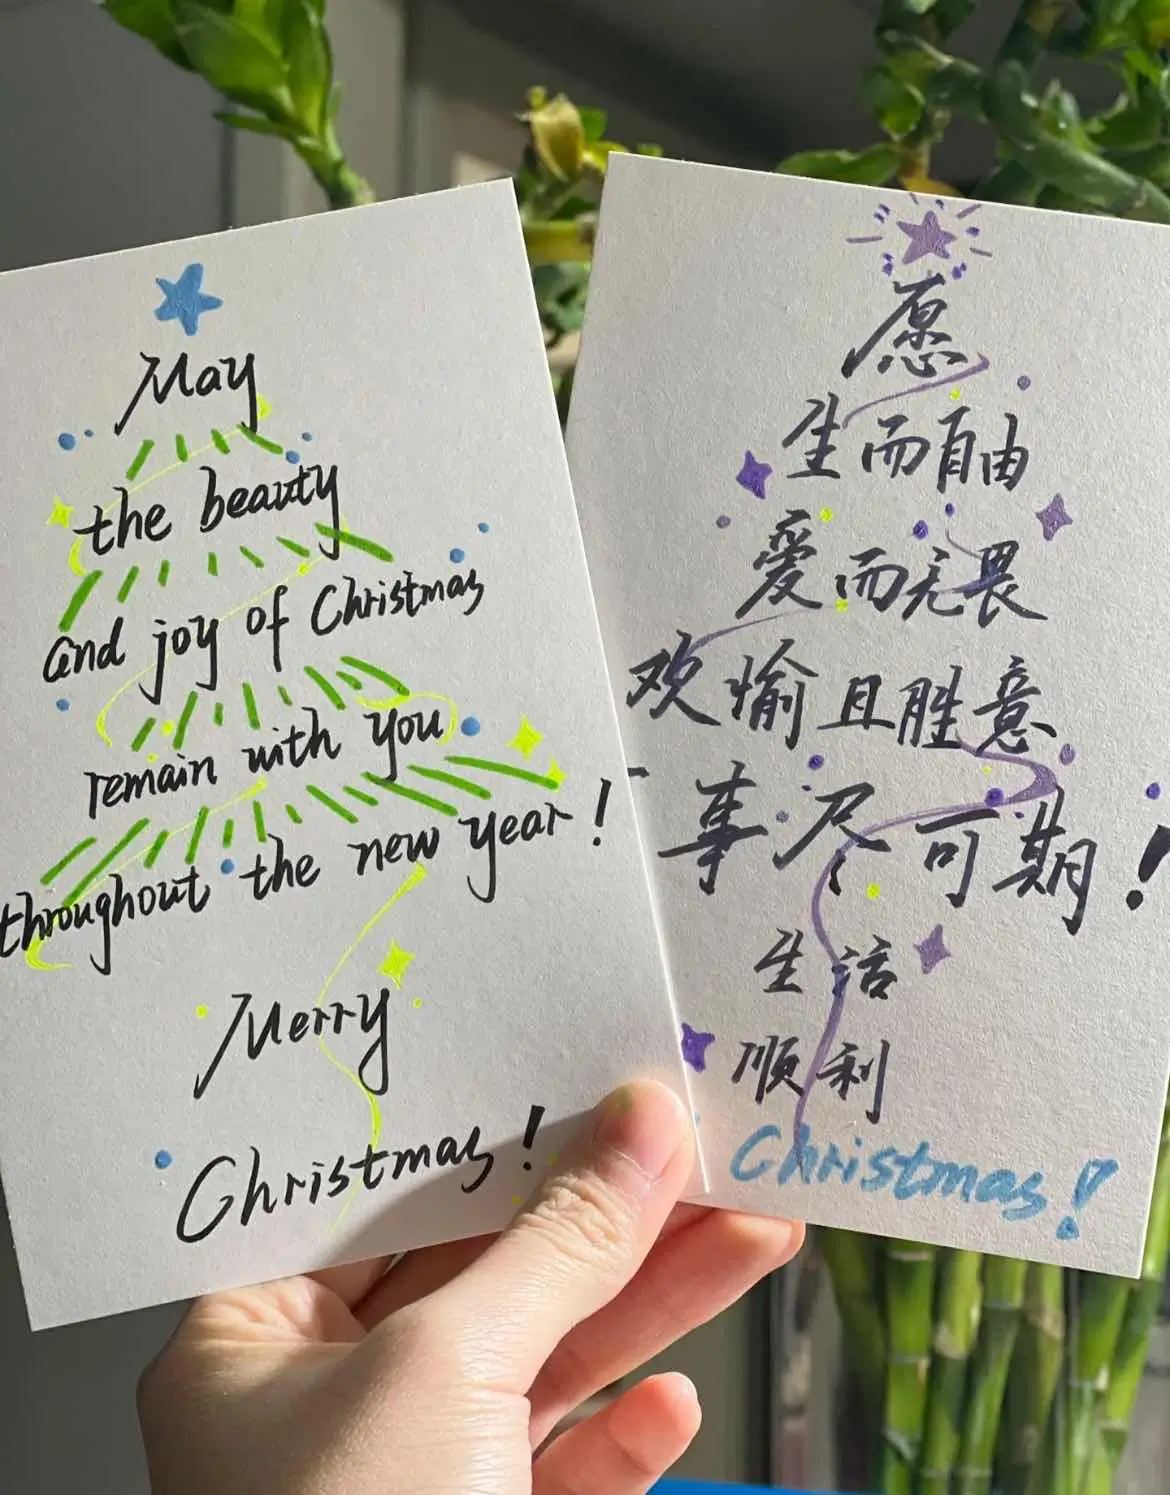 May
the beauty
and joy of Christmas
remain with you
throughout the new year!
Merry
Christmas!
愿
生而自由
爱而无畏
欢愉且胜意
事尽可期!
生活
顺利
Christmas!